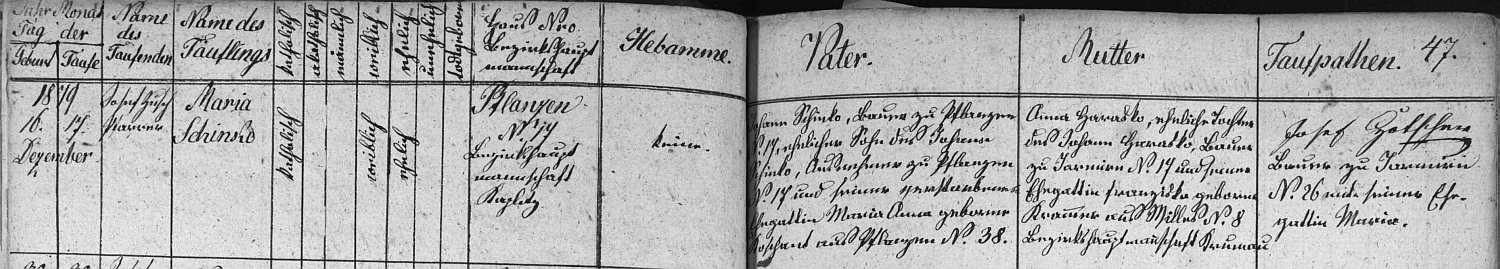 Jahr Monat
Tag der
Geburt Taufe
Name
des
Taufenden
Name des
Täuflings
katholisch
akatholisch
männlich
weiblich
ehelich
unehelich
todtgeboren
Haus Nro
Bezirkshaupt
mannschaft
Hebamme.
Vater.
Mutter
Taufpathen. 47.
1879
16. 17.
Dezember
Josef
Pfarrer
Maria
Schinko
katholisch
weiblich
ehelich
Pflanzen
N. 17
Bezirkshaupt
mannschaft
Kaplitz
keine.
Johann Schinko, Bauer zu Pflanzen
N. 17, ehelicher Sohn des Johann
Schinko, Ausnehmer zu Pflanzen
N. 17 und seiner verstorbenen
Ehegattin Maria Anna geborne
aus Pflanzen N. 38.
Anna Harasko, eheliche Tochter
des Johann Harasko, Bauer
zu Jarmirn N. 17 und seiner
Ehegattin Franziska geborne
Krammer aus N. 8
Bezirkshauptmannschaft Krumau
Josef
Bauer zu Jarmirn
N. 26 mit seiner Ehe-
gattin Maria.